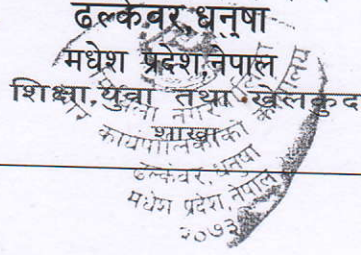 ढल्केवर,धनुषा
मधेश प्रदेश,नेपाल
शिक्षा,युवा तथा खेलकुद
शाखा
नगर कार्यपालिकाको कार्यालय
ढल्केवर, धनुषा
मधेश प्रदेश, नेपाल
२०७३